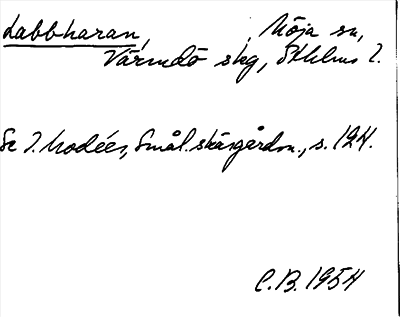 Labbharan, Möja sn,
Värmdö skg, Sthlms l.
Se I. Modéer, Smål. skärgårdsn., s. 124.
C.B. 1954